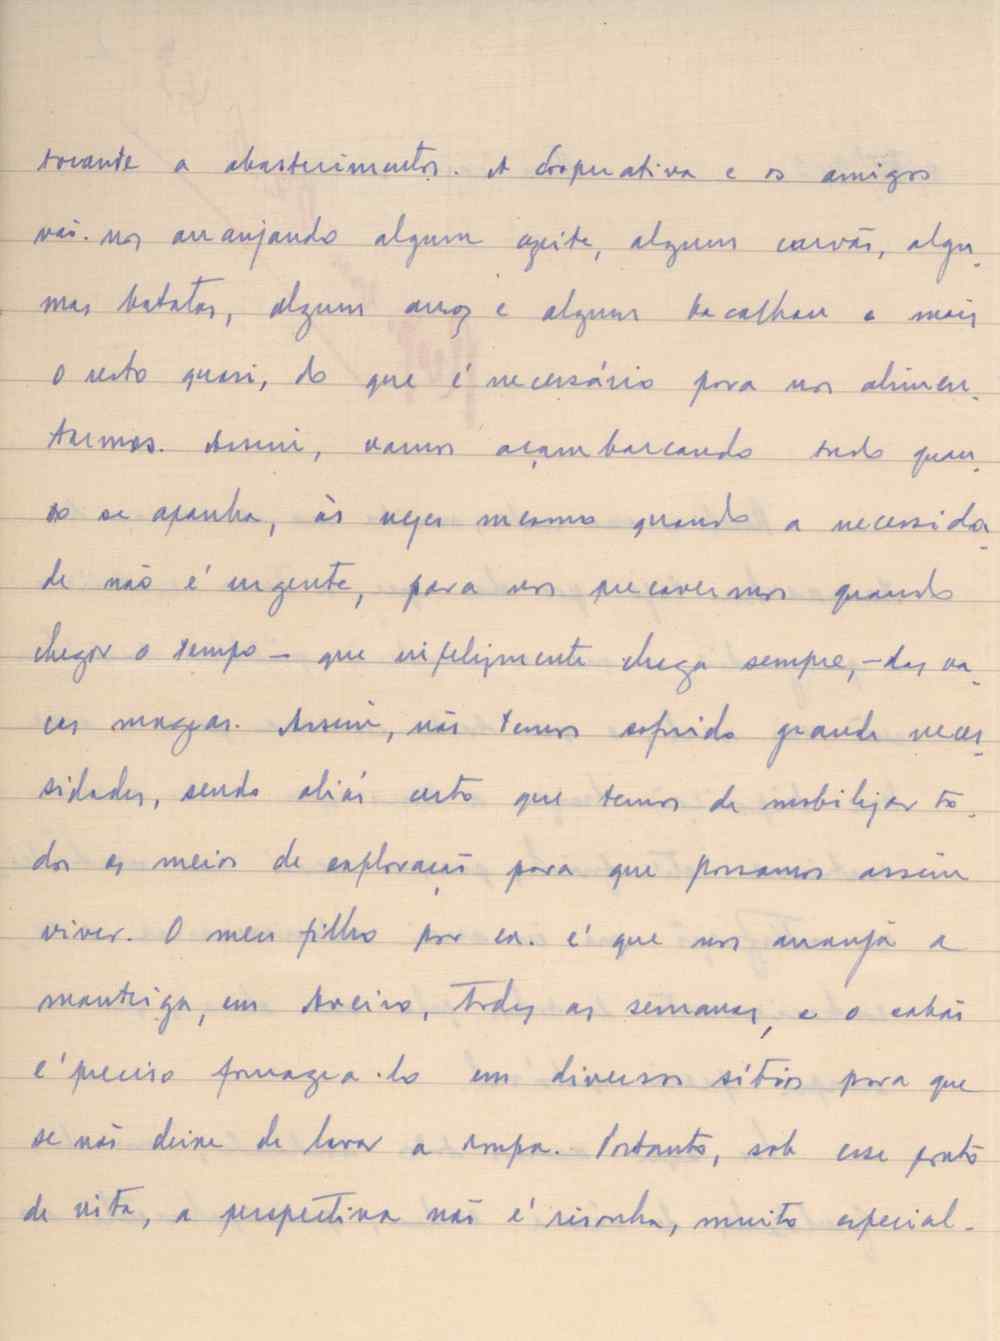 tocante a abastecimentos. A Cooperativa e os amigos
vão-nos arranjando algum azeite, algum carvão, algu-
mas batatas, algum arroz e algum bacalhau e mais
o resto quasi, do que é necessário para nos alimen-
tarmos. Assim, vamos açambarcando tudo quan-
to se apanha, às vezes mesmo quando a necessida-
de não é urgente, para nos precavermos quando
chegar o tempo - que infelizmente chega sempre, - das va-
cas magras. Assim, não temos sofrido grandes neces-
sidades, sendo aliás certo que temos de mobilizar to-
dos os meios de exploração para que possamos assim
viver. O meu filho por ex. é que nos arranja a
manteiga, em Aveiro, todas as semanas, e o sabão
é preciso forragea-lo em diversos sítios para que
se não deixe de lavar a roupa. Portanto, sob esse ponto
de vista, a perspectiva não é risonha, muito especial-